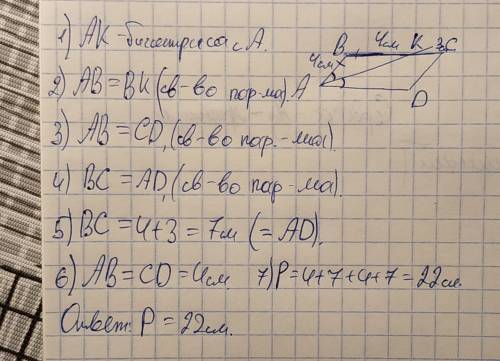 1) AK - биссектриса ∠ A.
2) AB = BK (св-во пар-ма).
3) AB = CD, (св-во пар.-ма).
4) BC = AD, (св-во пар-ма).
5) BC = 4+3 = 7см (= AD).
6) AB = CD = 4см. 7) P = 4+7+4+7 = 22см.
Ответ: P = 22см.
B 4см K 3 C
4см
A
D